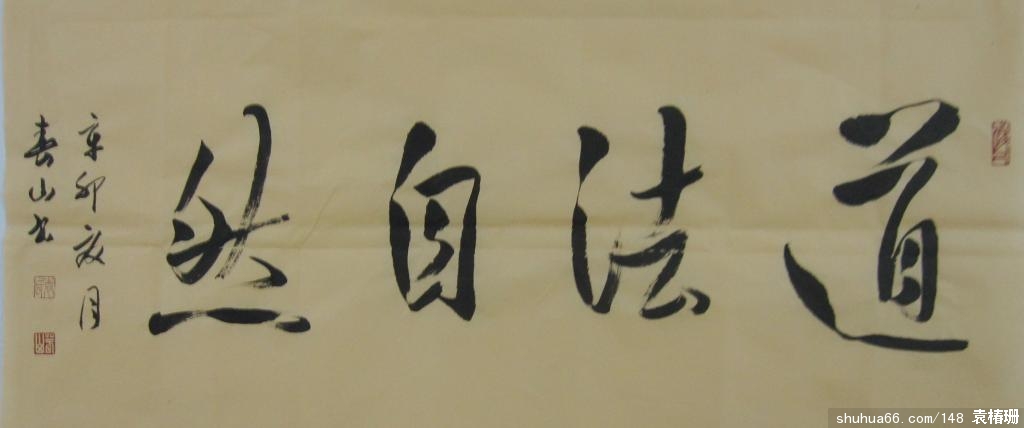 道法自然
辛卯夏月
春山书
shuhua66.com/148 袁椿珊